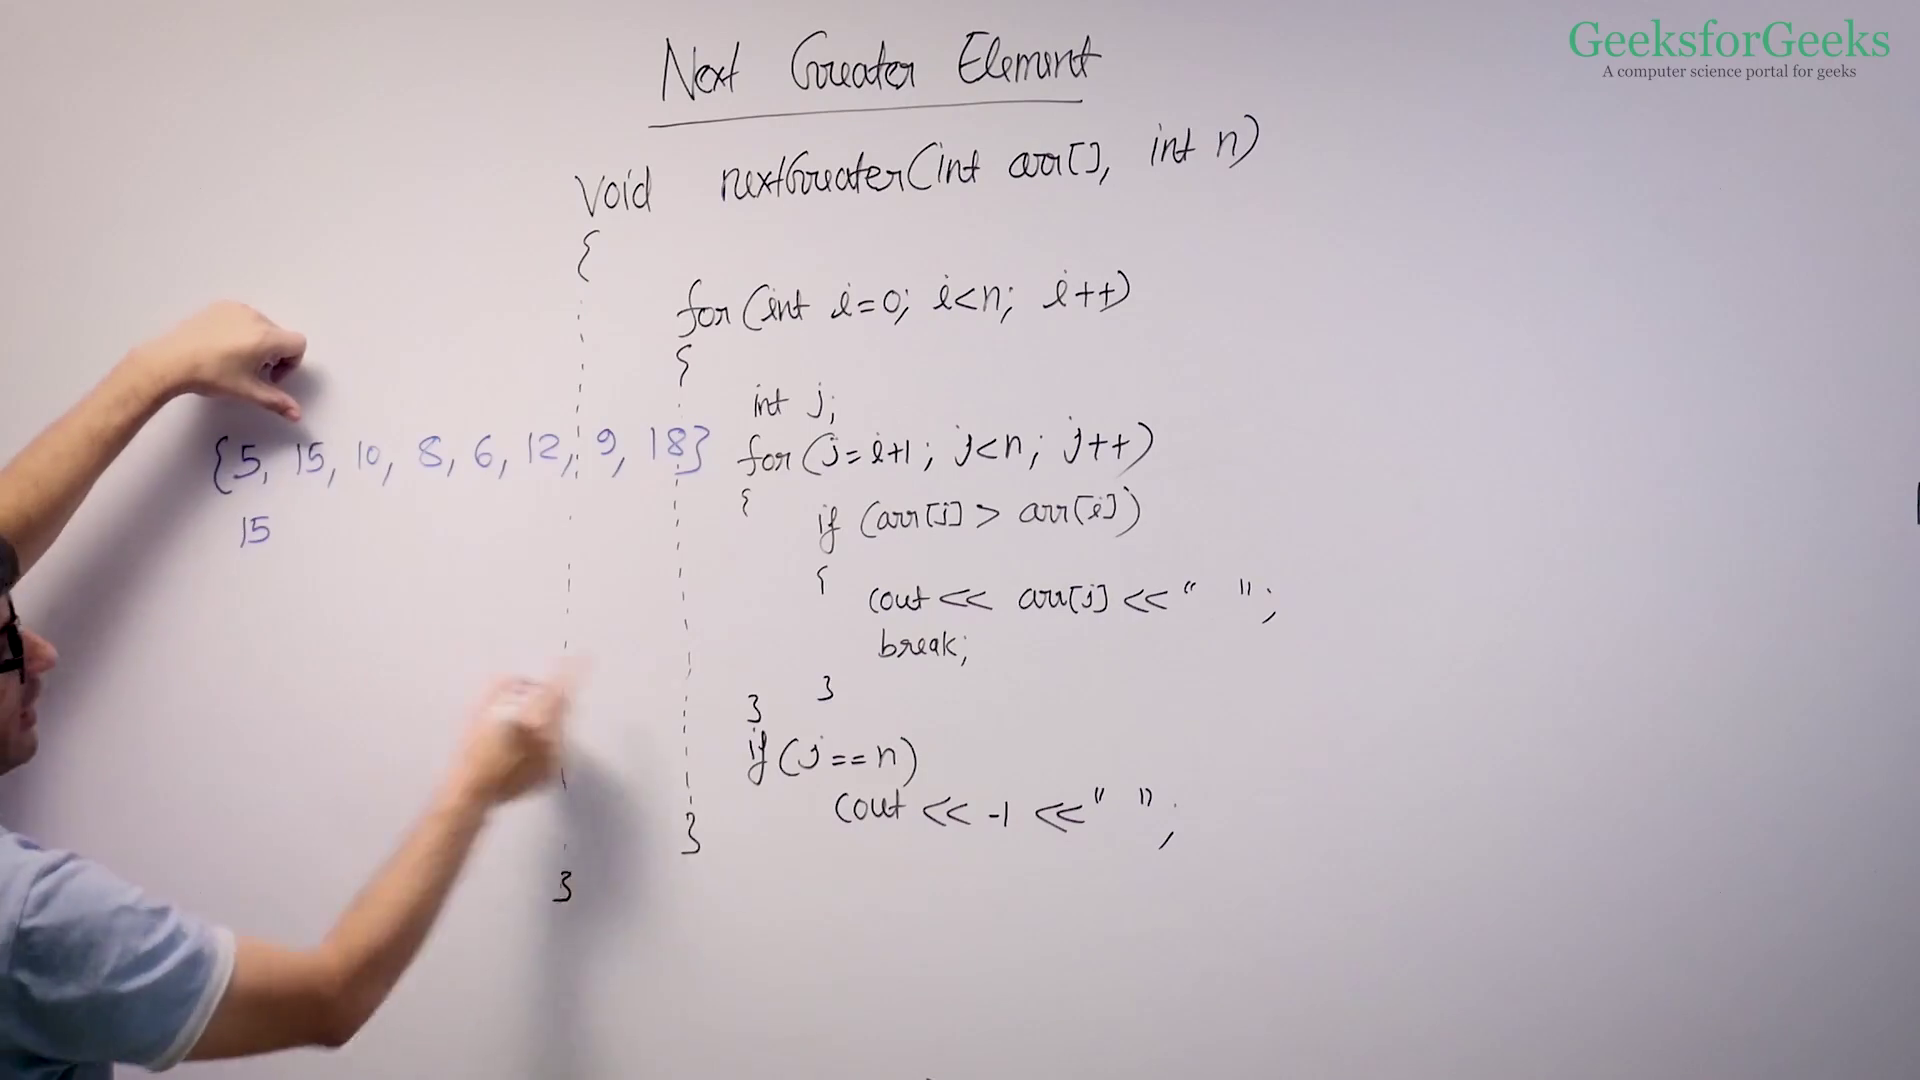 GeeksforGeeks
A computer science portal for geeks
Next Greater Element
void nextGreater(int arr[], int n)
{
for(int i=0; i<n; i++)
{
int j;
{5, 15, 10, 8, 6, 12, 9, 18}
for(j=i+1; j<n; j++)
{
15
if (arr[j] > arr[i])
{
cout << arr[j] << " ";
break;
}
}
if(j==n)
cout << -1 << " ";
}
}